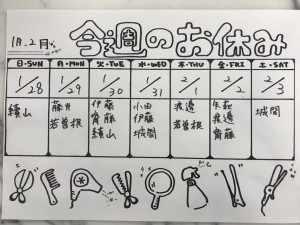 1月、2月
今週のお休み
日・SUN 月・MON 火・TUE 水・WED 木・THU 金・FRI 土・SAT
1/28 1/29 1/30 1/31 2/1 2/2 2/3
績山 藤井 伊藤 小田 渡邊 矢萩 城間
若曽根 齋藤 伊藤 若曽根 渡邊
績山 城間 齋藤